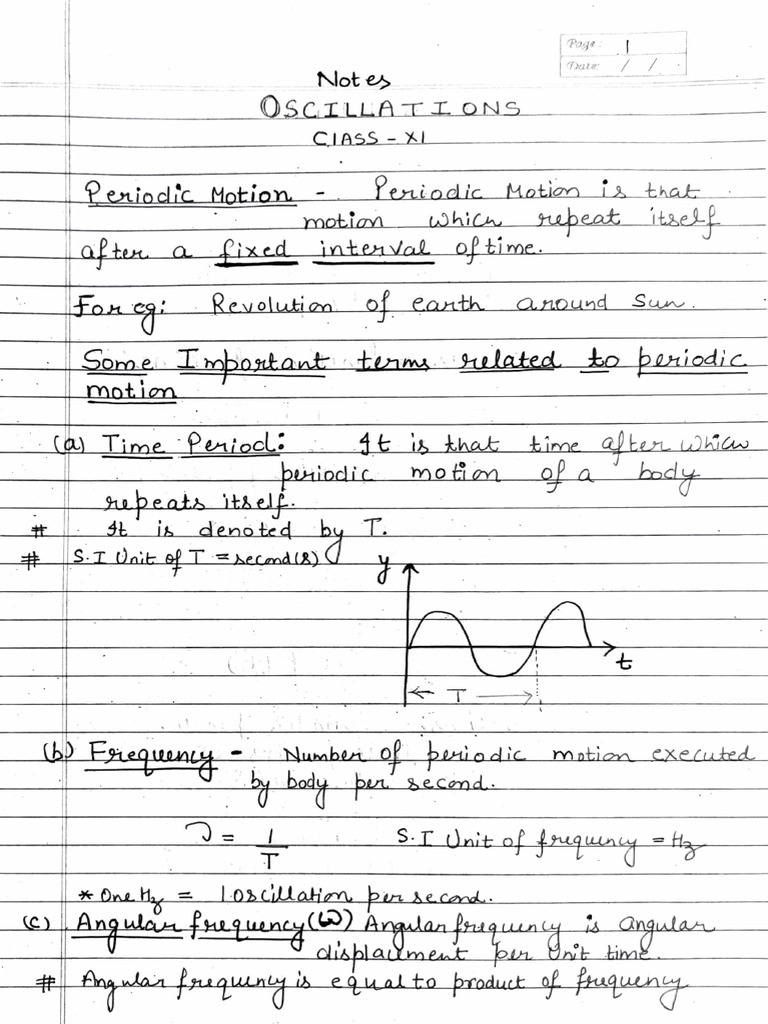 Page: 1
Date: / /
Notes
OSCILLATIONS
CLASS - XI
Periodic Motion - Periodic Motion is that
motion which repeat itself
after a fixed interval of time.
For eg: Revolution of earth around Sun.
Some Important terms related to periodic
motion
(a) Time Period: It is that time after which
periodic motion of a body
repeats itself.
# It is denoted by T.
# S.I Unit of T = second(s)
y
t
T
(b) Frequency - Number of periodic motion executed
by body per second.
ν = 1/T S.I Unit of frequency = Hz
* One Hz = 1 oscillation per second.
(c) Angular frequency (ω) Angular frequency is angular
displacement per Unit time.
# Angular frequency is equal to product of frequency